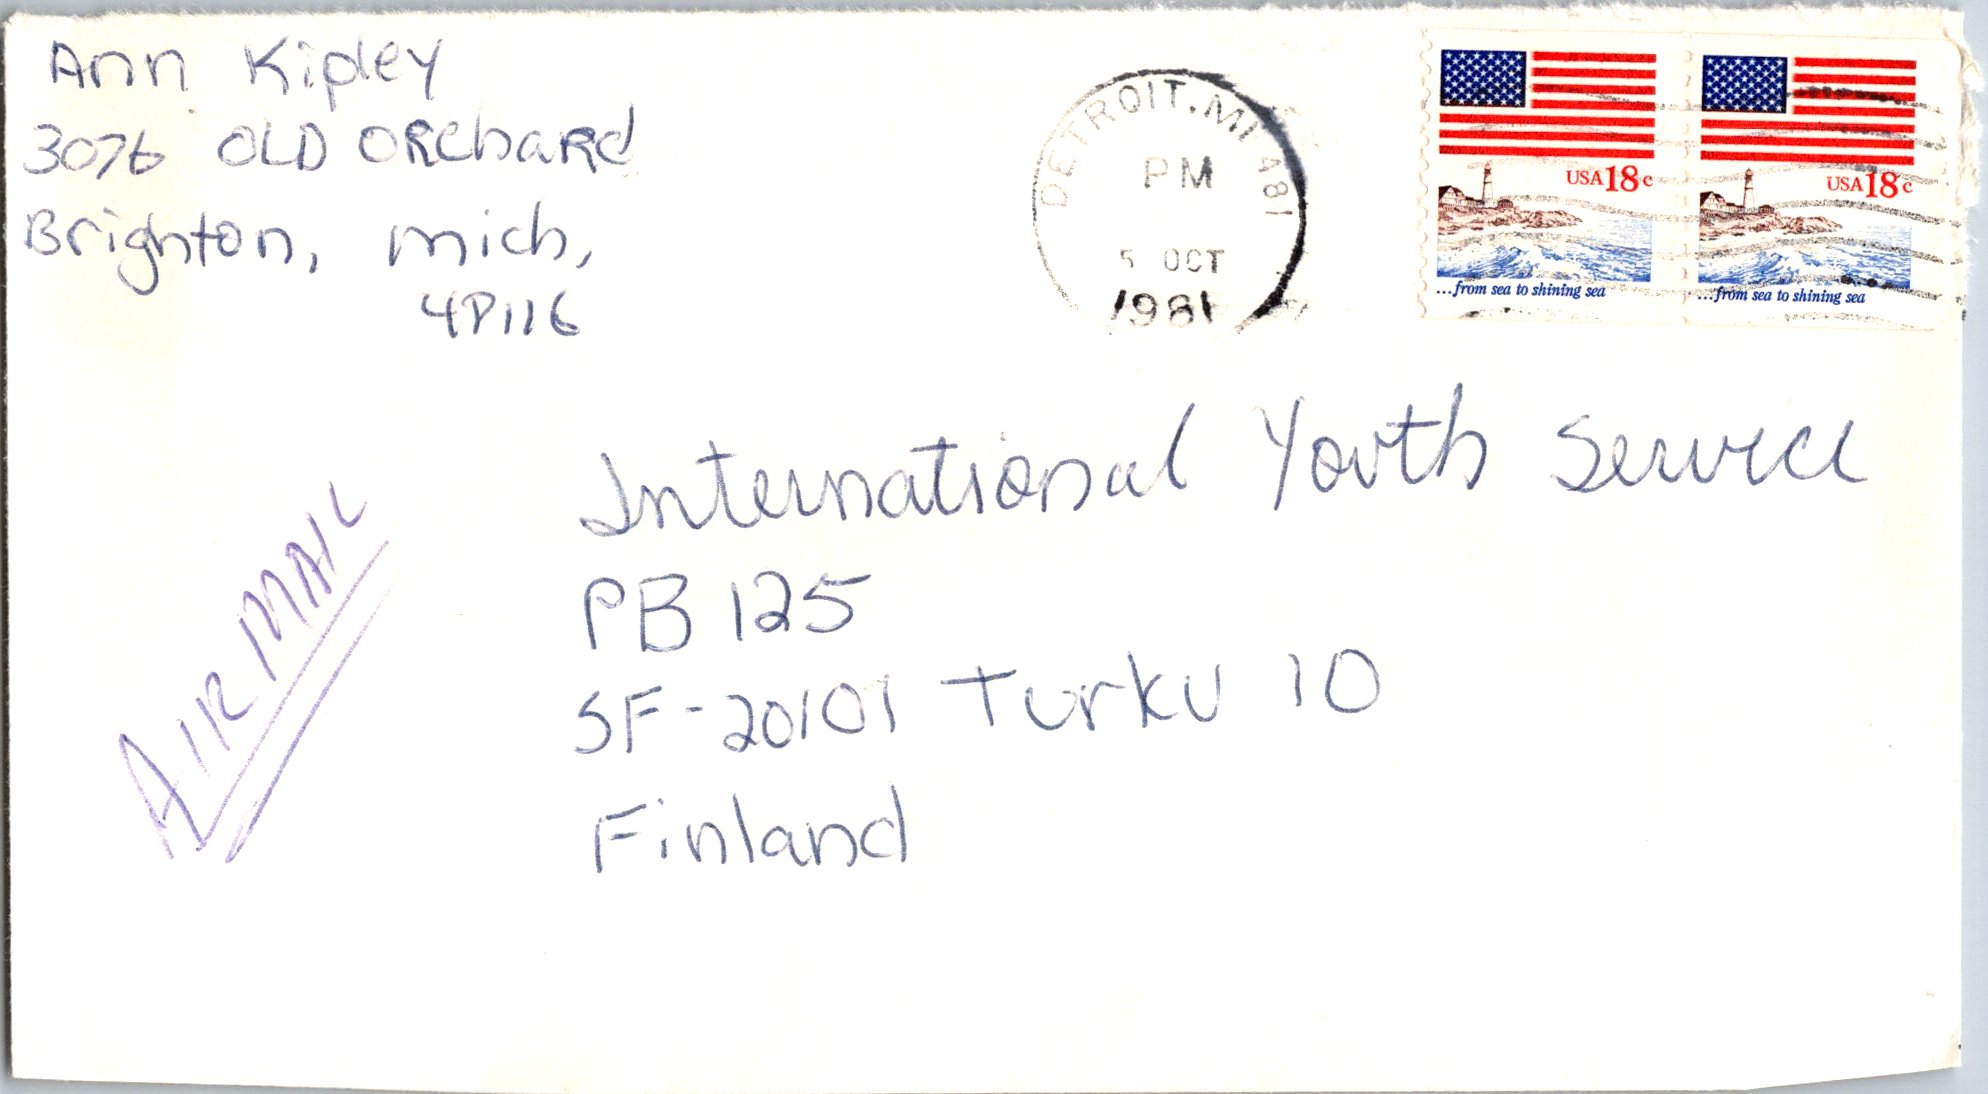 Ann Kipley
3076 OLD ORchaRd
Brighton, Mich,
48116
DETROIT, MI 481
PM
5 OCT
1981
USA 18c
...from sea to shining sea
USA 18c
...from sea to shining sea
AIR MAIL
International Youth Service
PB 125
SF-20101 Turku 10
Finland